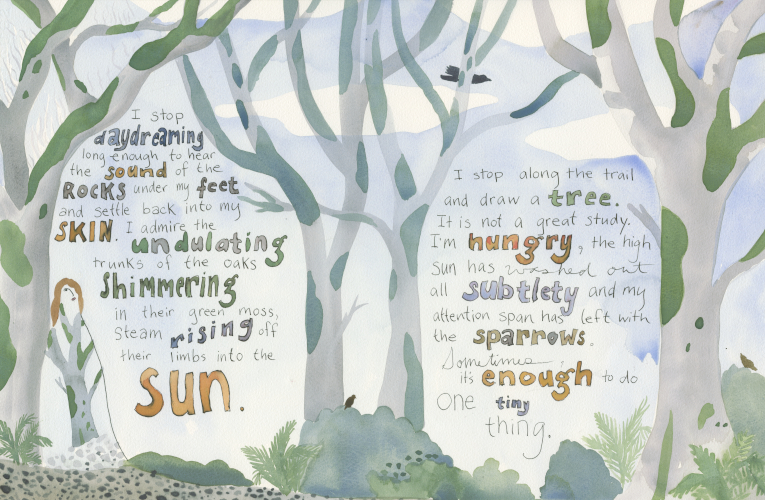 I stop
daydreaming
long enough to hear
the sound of the
ROCKS under my feet
and settle back into my
SKIN. I admire the
undulating
trunks of the oaks
shimmering
in their green moss,
Steam rising off
their limbs into the
sun.
I stop along the trail
and draw a tree.
It is not a great study.
I'm hungry, the high
sun has washed out
all subtlety and my
attention span has left with
the sparrows.
Sometimes,
it's enough to do
ONE tiny
thing.